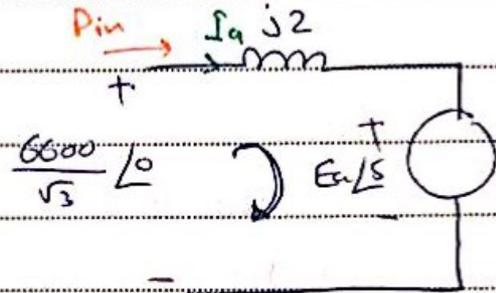 Pin
Ia j2
+
6600/√3 ∠0
+
Ea∠δ
-
-